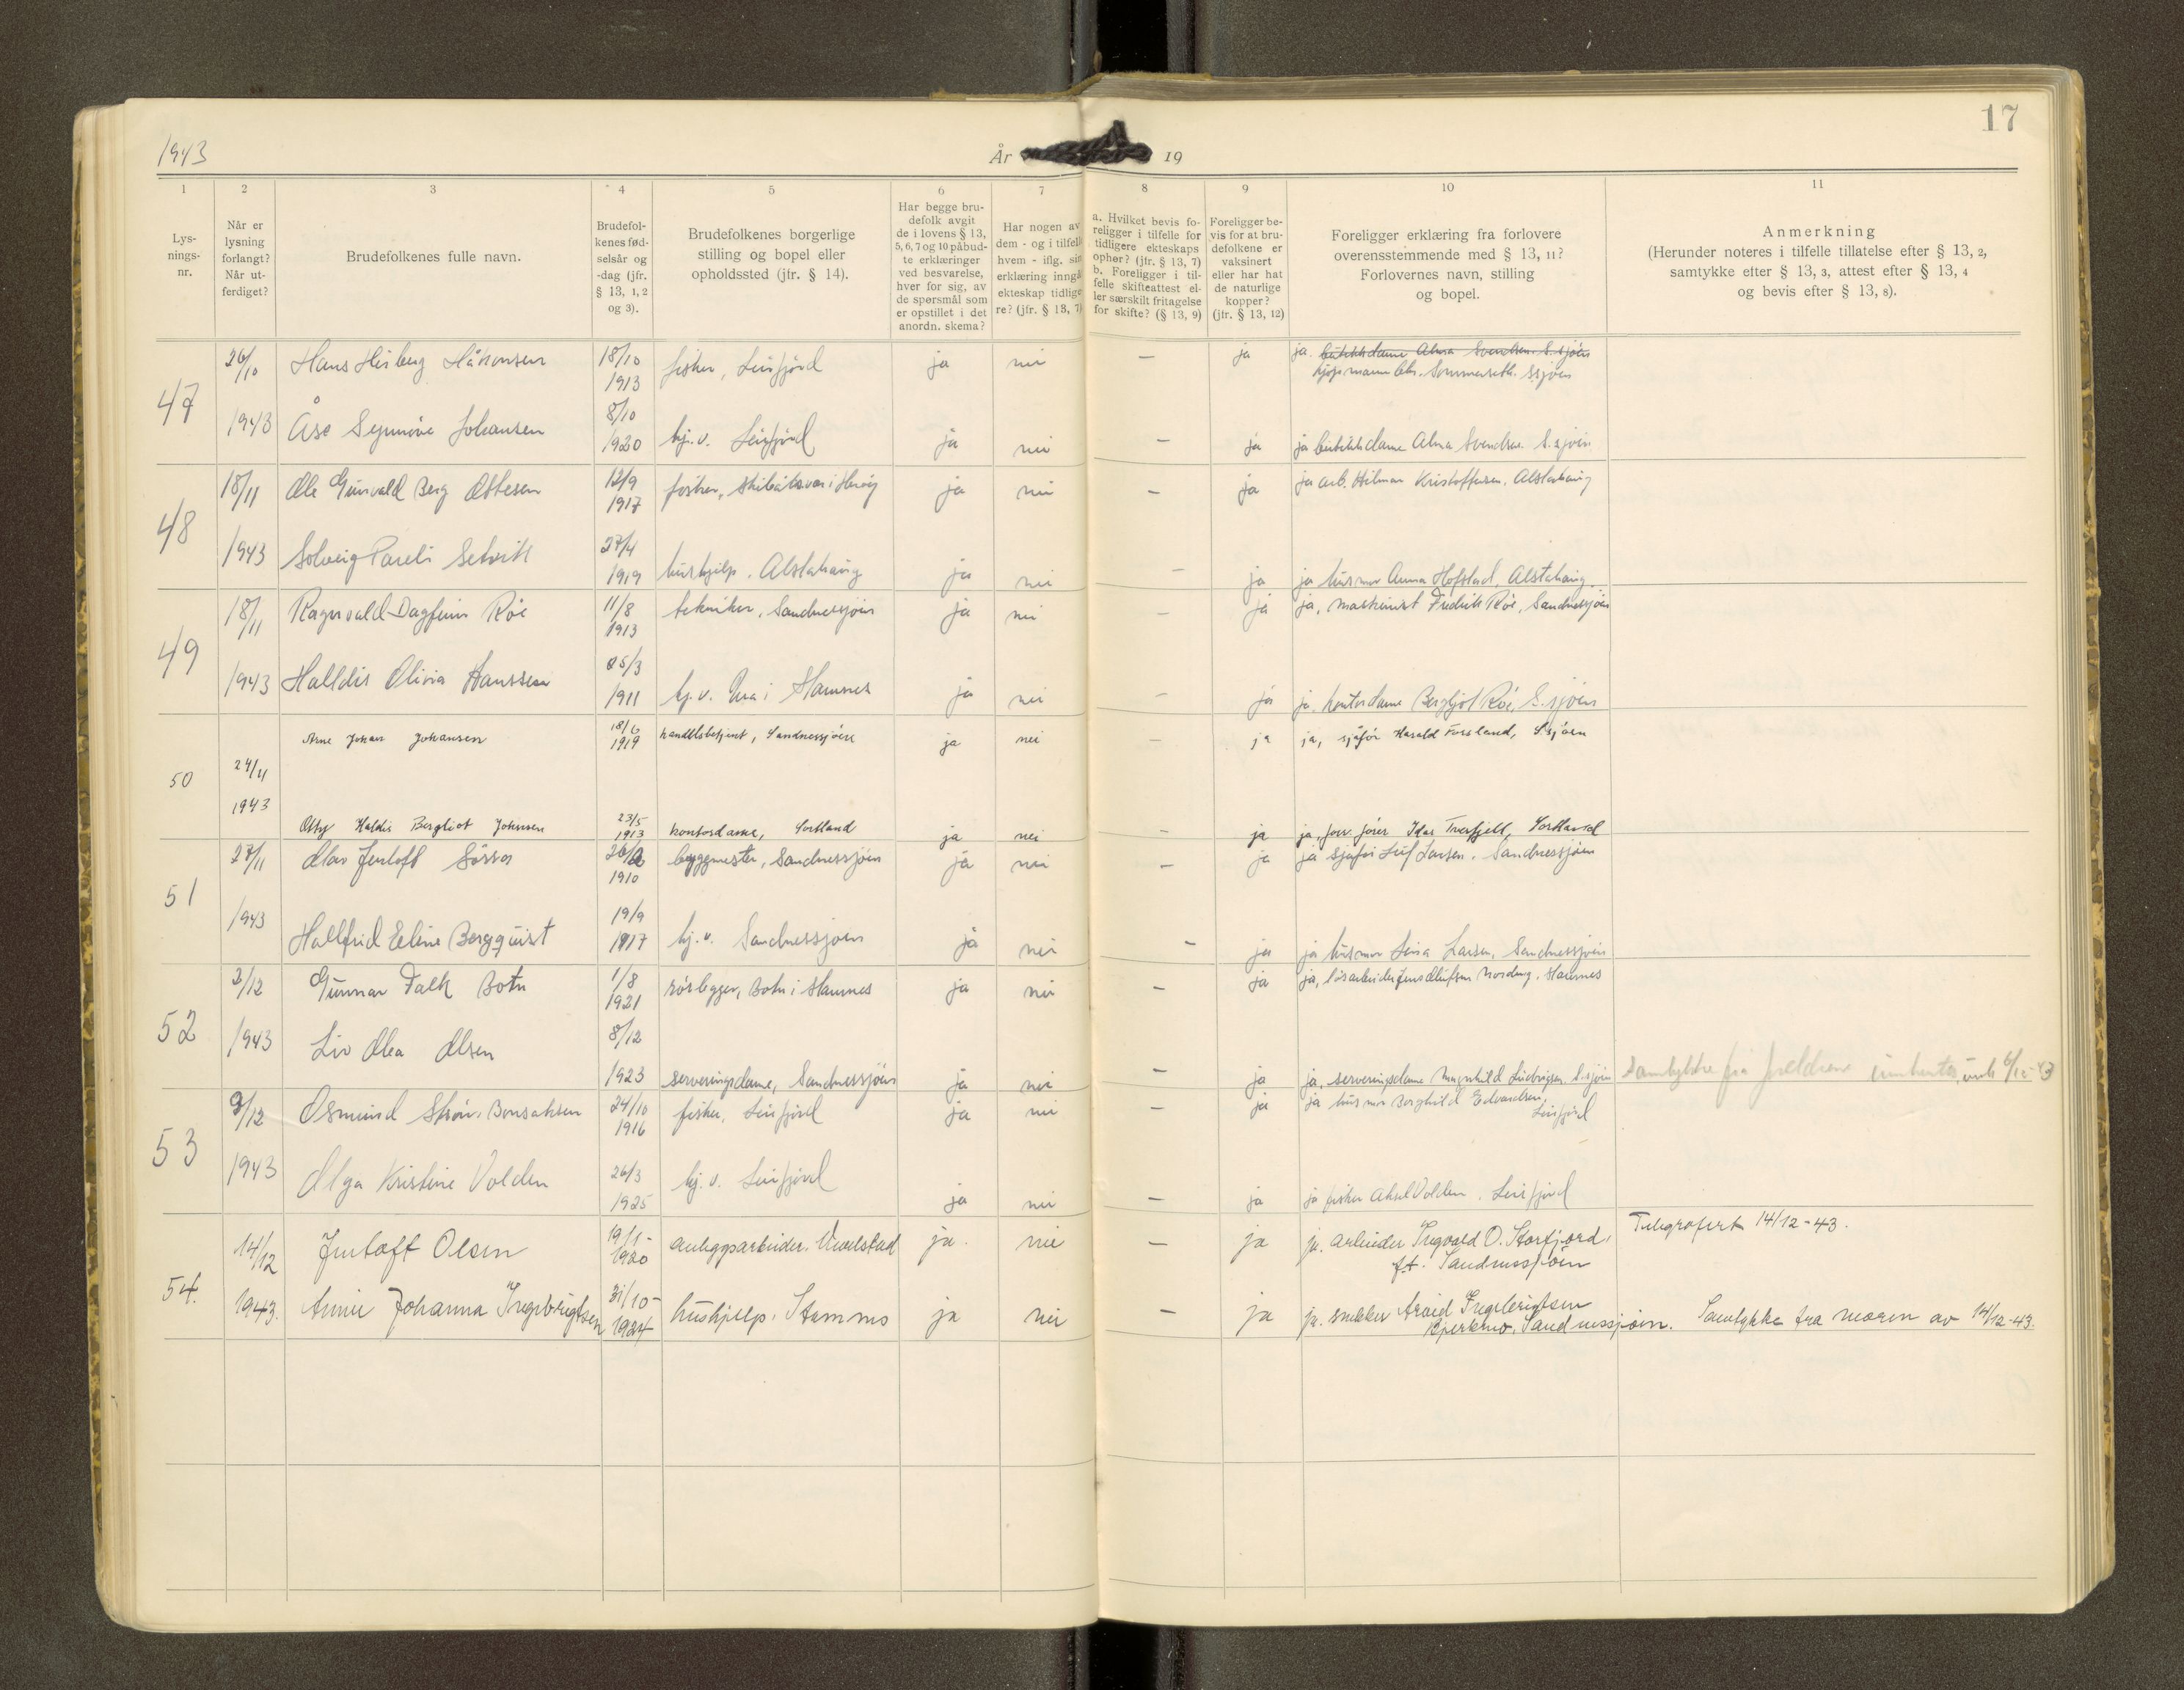 17
1943
År 19
1 2 3 4 5 6 7 8 9 10 11
Lys-
nings-
nr.
Når er
lysning
forlangt?
Når ut-
ferdiget?
Brudefolkenes fulle navn.
Brudefol-
kenes fød-
selsår og
-dag (jfr.
§ 13, 1, 2
og 3).
Brudefolkenes borgerlige
stilling og bopel eller
opholdssted (jfr. § 14).
Har begge bru-
defolk avgit
de i lovens § 13,
5, 6, 7 og 10 påbud-
te erklæringer
ved besvarelse,
hver for sig, av
de spørsmål som
er opstillet i det
anordn. skema?
Har nogen av
dem - og i tilfelle
hvem - iflg. sin
erklæring inngå
ekteskap tidlige
re? (jfr. § 13, 7)
a. Hvilket bevis fo-
religger i tilfelle for
tidligere ekteskaps
ophør? (jfr. § 13, 7)
b. Foreligger i til-
felle skifteattest el-
ler særskilt fritagelse
for skifte? (§ 13, 9)
Foreligger be-
vis for at bru-
defolkene er
vaksinert
eller har hat
de naturlige
kopper?
(jfr. § 13, 12)
Foreligger erklæring fra forlovere
overensstemmende med § 13, 11?
Forlovernes navn, stilling
og bopel.
Anmerkning
(Herunder noteres i tilfelle tillatelse efter § 13, 2,
samtykke efter § 13, 3, attest efter § 13, 4
og bevis efter § 13, 8).
47 26/10 Hans Herberg Håkonsen 18/10 1913 fisker, Leirfjord ja nei — ja ja. butikkdame Alma Svendsen. S.sjøen
kjøpmann Chr. Sommerseth. S.sjøen
1943 Åse Synnøve Johansen 8/10 1920 hj.v. Leirfjord ja nei — ja ja butikkdame Alma Svendsen S.sjøen
48 18/11 Ole Gunvald Berg Ottesen 12/9 1917 fisker, Skibåtsvær i Herøy ja nei — ja ja arb. Hilmar Kristoffersen. Alstahaug
1943 Solveig Pareli Setvik 27/4 1919 hushjelp. Alstahaug ja nei — ja ja husmor Anna Hofstad, Alstahaug.
49 18/11 Ragnvald Dagfinn Røe 11/8 1913 tekniker, Sandnessjøen ja nei — ja ja, maskinist Fredrik Røe, Sandnessjøen
1943 Halldis Olivia Hanssen 25/3 1911 hj.v. i Hamnes ja nei — ja ja, kontordame Bergljot Røe, S.sjøen
50 24/11 Arne Johan Johansen 18/6 1919 handelsbetjent, Sandnessjøen ja nei — ja ja, sjåfør Harald Forsland, S.sjøen
1943 Haldis Bergliot Johnsen 23/5 1913 kontordame, Sortland ja nei — ja ja, forr. fører Idar Tverfjell, Sortland
51 27/11 Olav Jentoft Søsser 26/2 1910 byggmester, Sandnessjøen ja nei — ja ja sjåfør Leif Larsen. Sandnessjøen
1943 Hallfrid Eeline Bergquist 19/9 1917 hj.v. Sandnessjøen ja nei — ja ja husmor Lina Larsen, Sandnessjøen
52 2/12 Gunnar Falk Botn 1/8 1921 rørlegger, Botn i Hamnes ja nei — ja ja, løsarbeider Jens Olufsen Nordeng. Hamnes
1943 Liv Olea Olsen 8/12 1923 serveringsdame, Sandnessjøen ja nei — ja ja, serveringsdame Magnhild Ludvigsen S.sjøen Samtykke fra foreldrene innhentes 6/12-43
53 9/12 Osmund Strøm Bonsaksen 24/10 1916 fisker, Leirfjord ja nei — ja ja husmor Borghild Edvardsen,
Leirfjord
1943 Olga Kristine Volden 26/3 1925 hj.v. Leirfjord ja nei — ja ja fisker Aksel Volden. Leirfjord
54. 14/12 Jentoft Olsen 19/1- 1920 anleggsarbeider. ja. nei — ja ja. arbeider Ingvald O. Storfjord, Telegrafert 14/12-43.
f.t. Sandnessjøen
1943. Annie Johanna Ingebrigtsen 31/10- 1924 hushjelp, Stamnes ja nei — ja ja. snekker Arvid Ingebrigtsen
Bjerkmo, Sandnessjøen. Samtykke fra moren av 14/12-43.